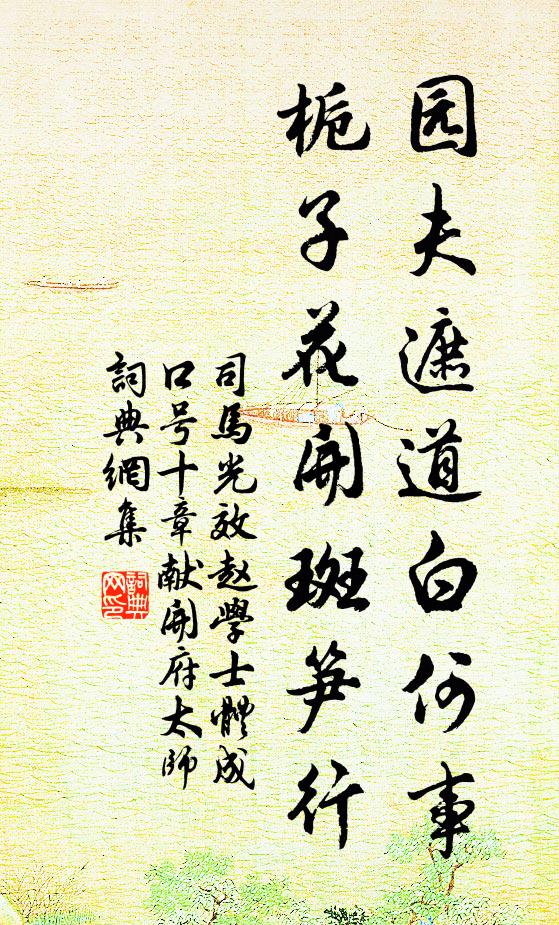 园夫遮道白何事
栀子花開斑笋行
司馬光效赵學士體成
口号十章献開府太師
詞典網集
詞典网印